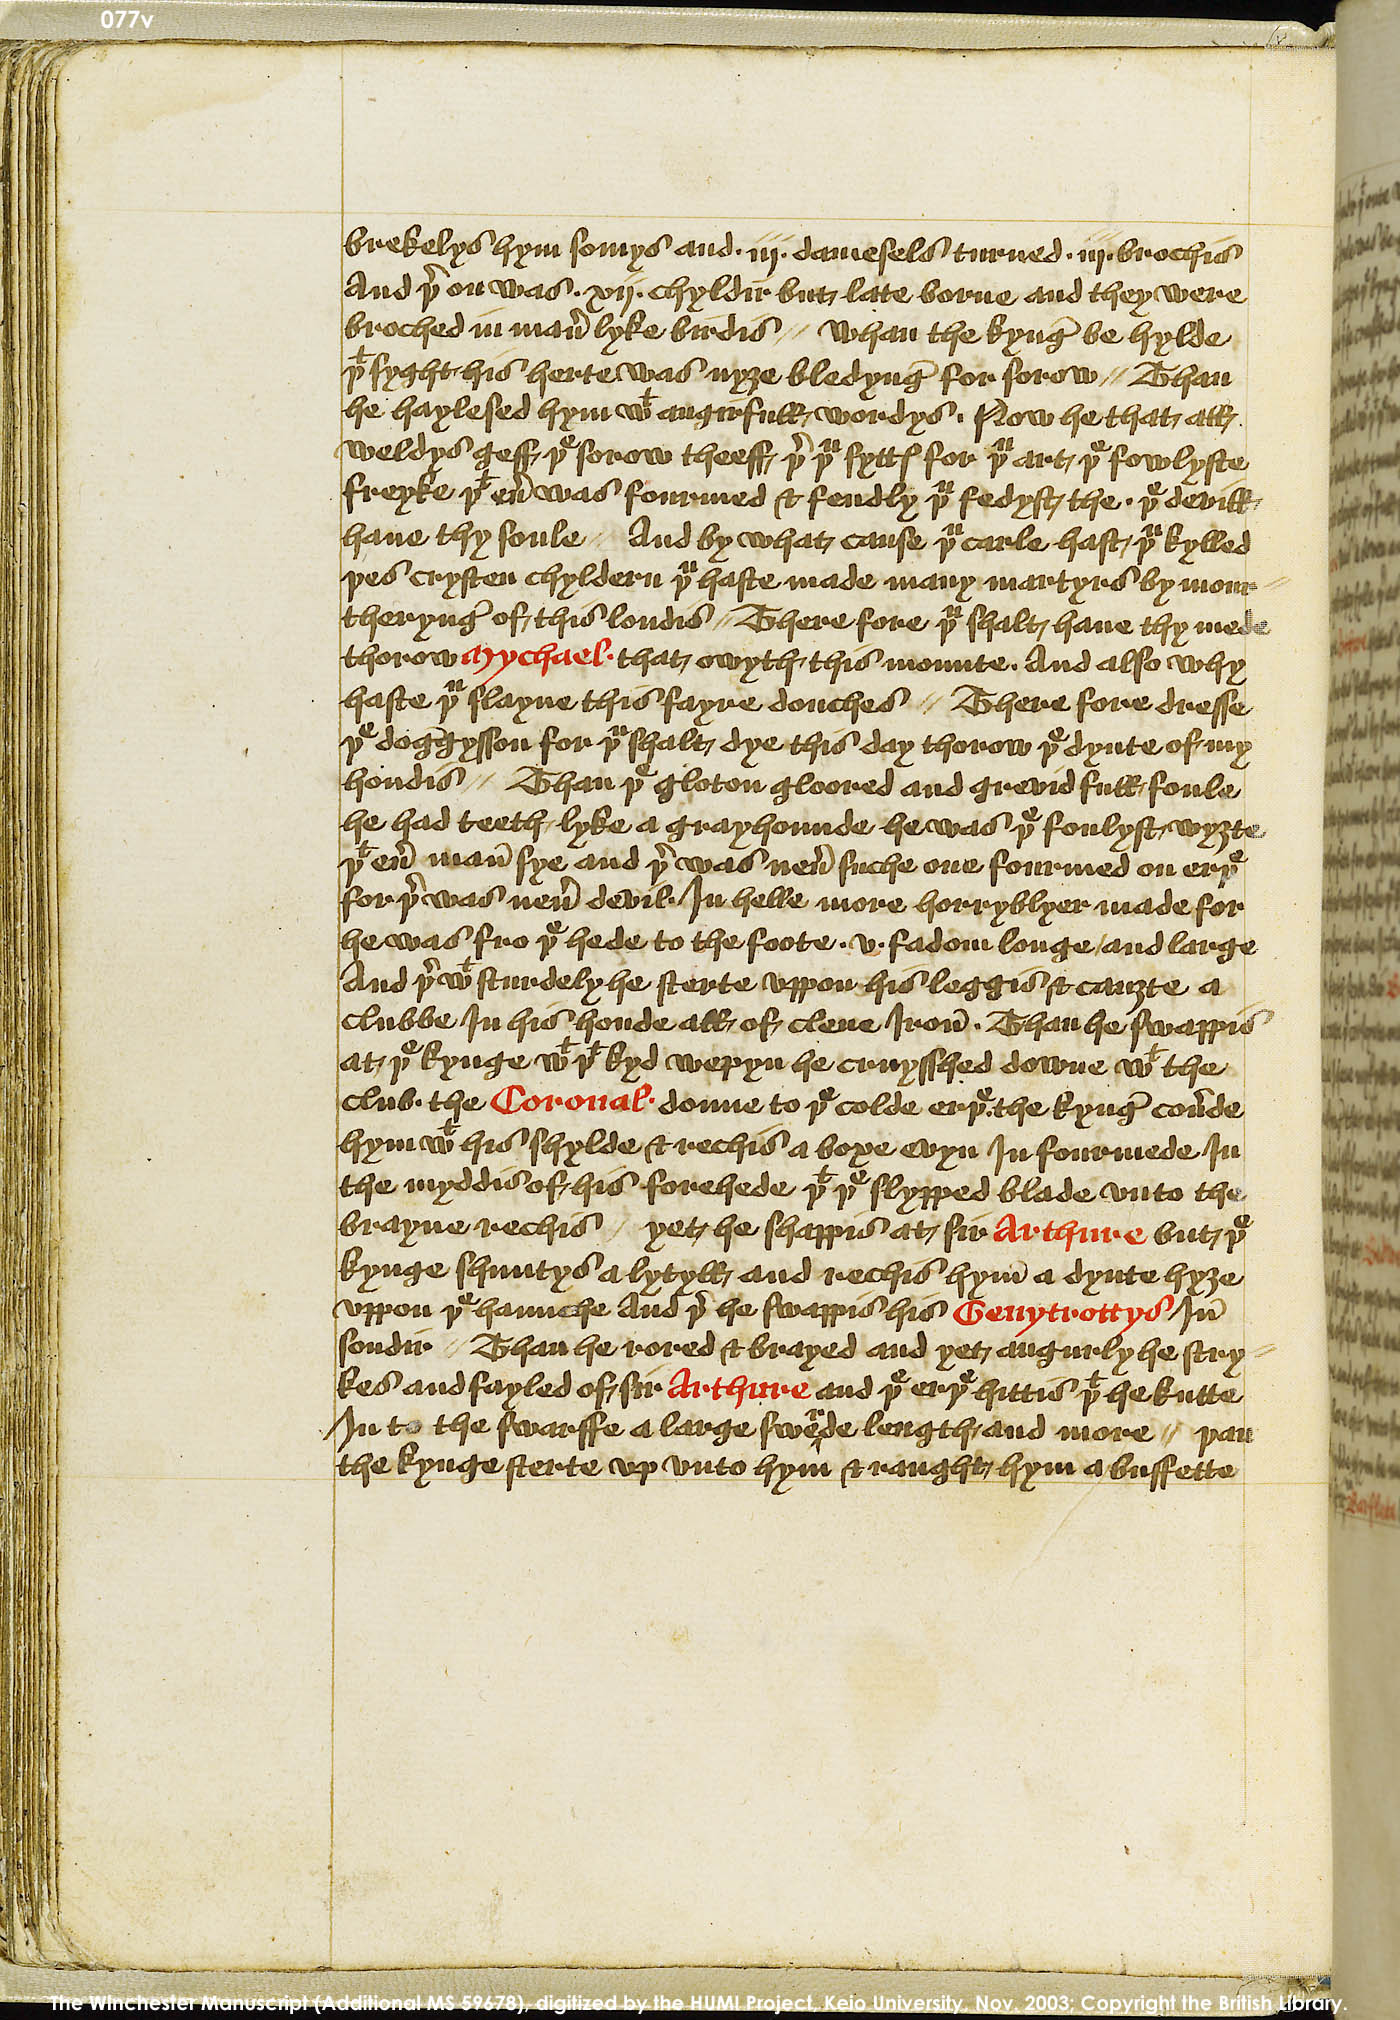 077v
brekelys hym semys and · iij · dameselys turned · iij · brochis
And þʳ on was · xij · chyldir but late borne and they were
broched in manꝰ lyke birdis // Whan the kynge be hylde
þᵗ syght his herte was nyȝe bledynge for sorow // Than
he haylesed hym wᵗ angirfull wordys · Now he that all
weldys geff þᵉ sorow theeff þʳ þᵘ syttꝭ for þᵘ art þᵉ fowlyste
freyke þᵗ enꝰ was fourmed & fendly þᵘ fedyst the · þᵉ devill
haue thy soule // And by what cause þᵘ carle hast þᵘ kylled
þes crysten chyldern þᵘ haste made many martyrs by mour //
therynge of this londis // There fore þᵘ shalt haue thy mede
thorow Mychael · that owyth this mounte · And also why
haste þᵘ slayne this fayre douches // There fore dresse
þᵉ doggysson for þᵘ shalt dye this day thorow þᵉ dynte of my
hondis // Than þᵉ gloton gloored and grevid full foule
he had teeth lyke a grayhounde he was þᵉ foulyst wyȝte
þᵗ enꝰ man sye and þʳ was nenꝰ suche one fourmed on erþᵉ
for þʳ was nenꝰ devil · In helle more horryblyer made for
he was fro þᵉ hede to the foote · v · fadom longe / and large
And þʳ wᵗ sturdely he sterte vppon his leggis & cauȝte a
clubbe In his honde all of clene Iron · Than he swappis
at þᵉ kynge wᵗ þᵗ kyd wepyn he cruysshed downe wᵗ the
club · the Coronal · doune to þᵉ colde erþᵉ · the kynge couꝰde
hym wᵗ his shylde & rechis a boxe evyn In fourmede In
the myddis of his forehede þᵗ þᵉ slypped blade vnto the
brayne rechis / yet he shappis at sir Arthure but þᵉ
kynge shuntys a lytyll and rechis hym a dynte hyȝe
vppon þᵉ haunche And þʳ he swappis his Genytrottys In
sondir // Than he rored & brayed and yet angurly he stry //
kes and fayled of sir Arthure and þᵉ erþᵉ hittis þᵗ he kutte
In to the swarffe a large swerde length and more // þan
the kynge sterte vp vnto hym & raught hym a buffette
The Winchester Manuscript (Additional MS 59678), digitized by the HUMI Project, Keio University, Nov. 2003; Copyright the British Library.